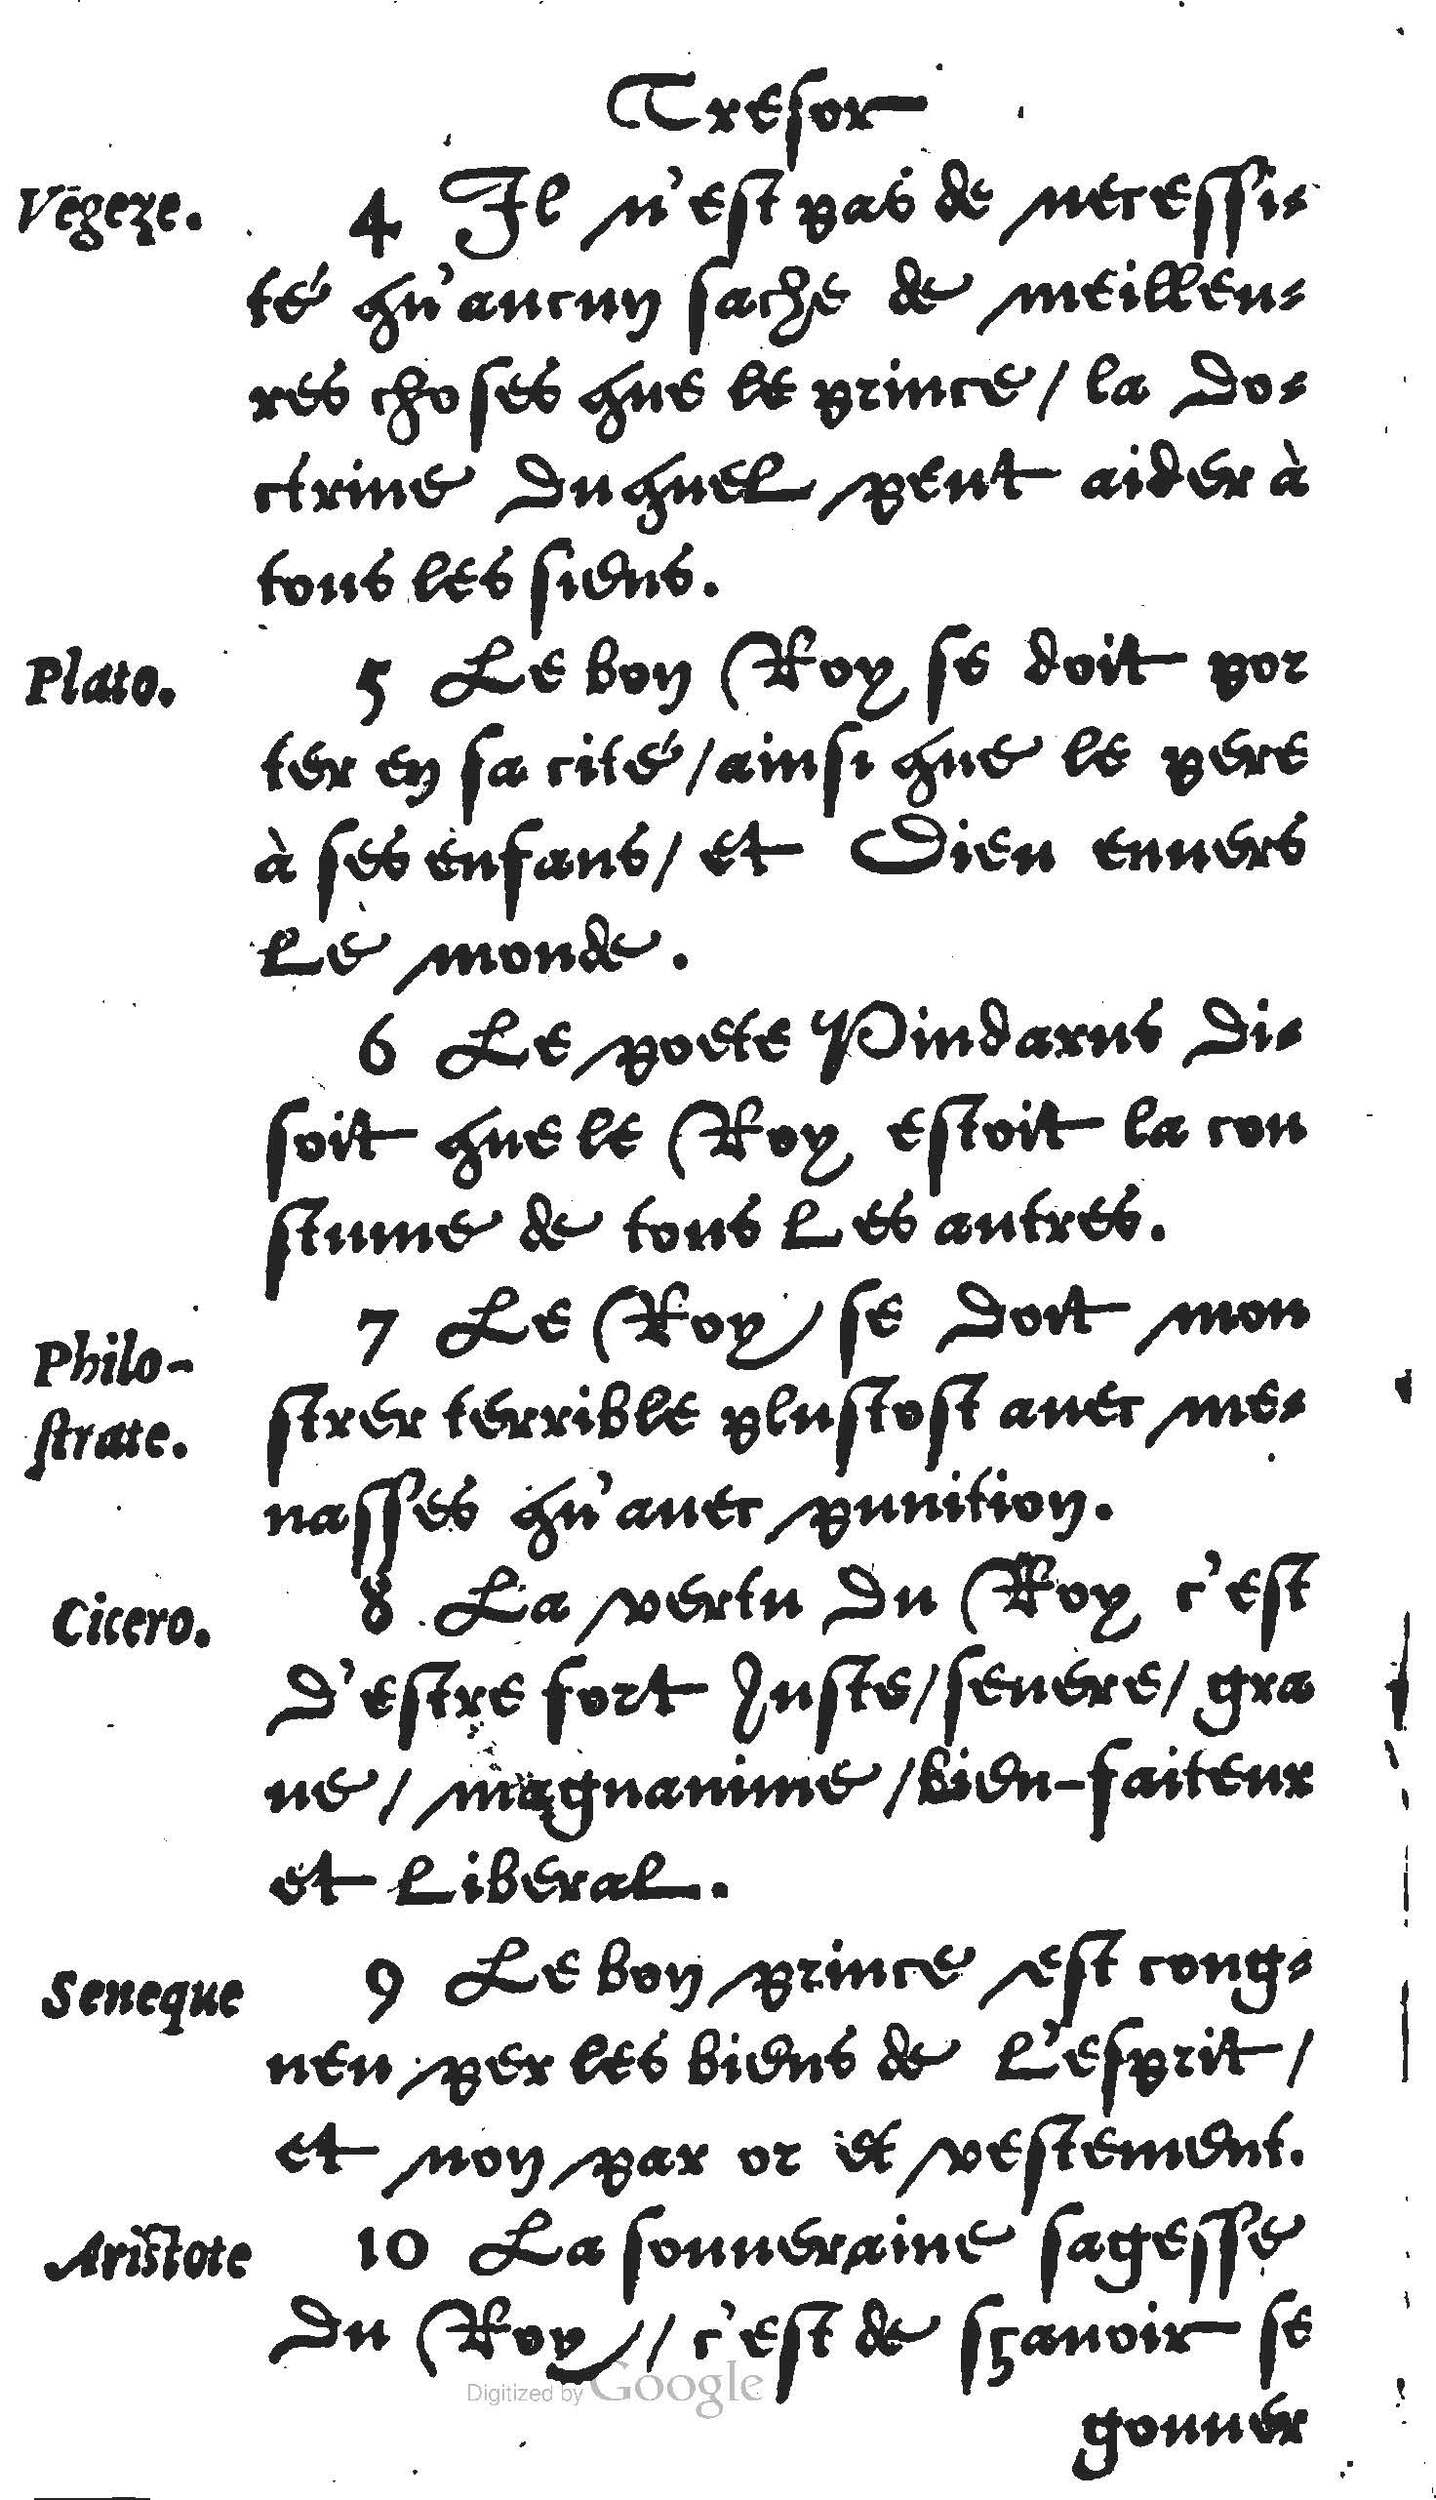 Tresor
Vegeze.
4 Il n'est pas de necessi-
té qu'aucun sache de meilleu-
res choses que le prince / la do-
ctrine duquel peut aider à
tous les siens.
Plato.
5 Le bon Roy se doit por
ter en sa cité / ainsi que le pere
à ses enfans / et Dieu enuers
le monde.
6 Le poete Pindarus di-
soit que le Roy estoit la cou
stume de tous les autres.
Philo-
strate.
7 Le Roy se doit mon
strer terrible plustost auec me-
nasses qu'auec punition.
Cicero.
8 La vertu du Roy c'est
d'estre fort Iuste / seuere / gra
ue / magnanime / bien-faiteur
et liberal.
Seneque
9 Le bon prince est cong-
neu per les biens de l'esprit /
et non par or et vestement.
Aristote
10 La souueraine sagesse
du Roy // c'est de sçauoir se
gouuer
Digitized by Google